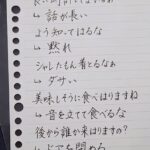 ↳ 話が長い
よう知ってはるな
↳ 黙れ
シャレたもん着とるなぁ
↳ ダサい
美味しそうに食べはりますね
↳ 音を立てて食べるな
後から誰か来はりますの?
↳ ドアを閉めろ